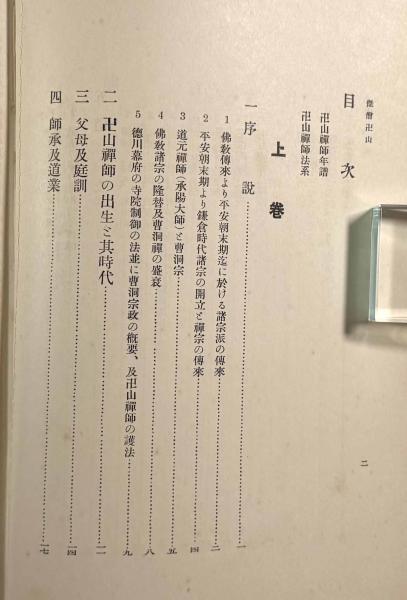 傑僧卍山
目次
卍山禪師年譜
卍山禪師法系
上卷
一 序說 一
1 佛敎傳來より平安朝末期迄に於ける諸宗派の傳來 二
2 平安朝末期より鎌倉時代諸宗の開立と禪宗の傳來 四
3 道元禪師(承陽大師)と曹洞宗 五
4 佛敎諸宗の隆替及曹洞禪の盛衰 八
5 德川幕府の寺院制御の法並に曹洞宗政の槪要、及卍山禪師の護法 九
二 卍山禪師の出生と其時代 一一
三 父母及庭訓 一四
四 師承及道業 一七
二